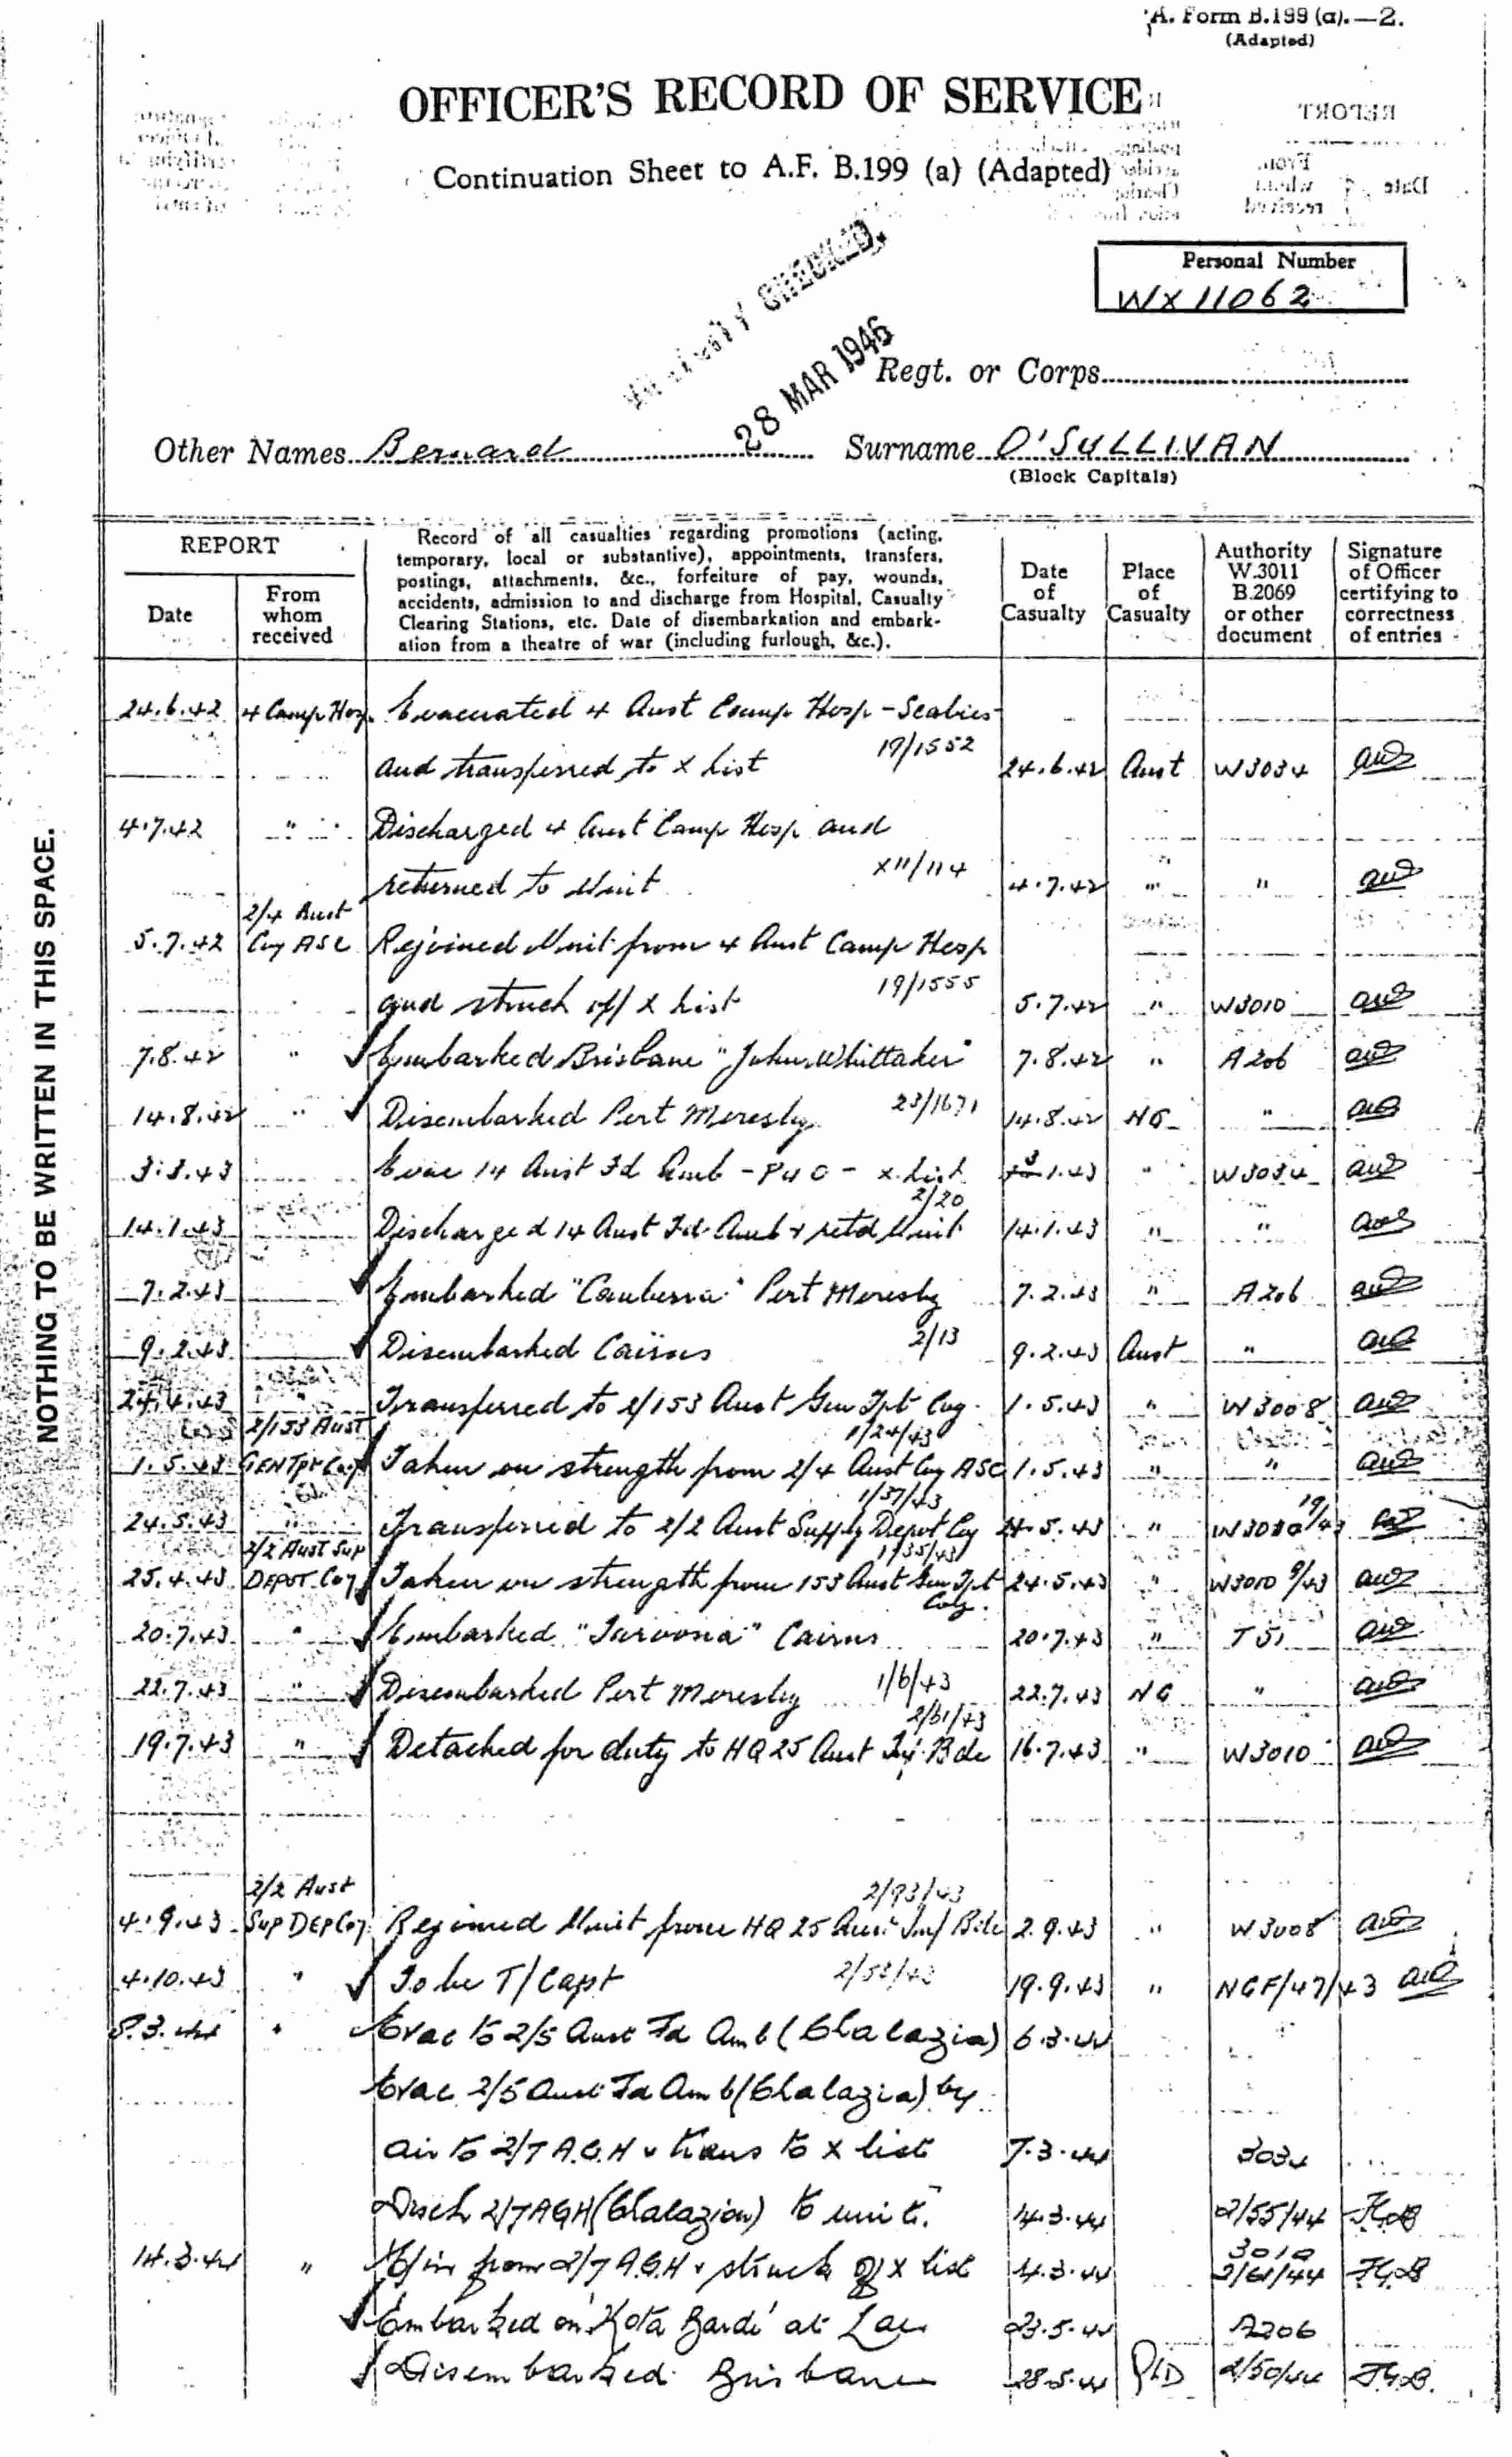 A. Form B.199 (a).—2.
(Adapted)
OFFICER'S RECORD OF SERVICE
Continuation Sheet to A.F. B.199 (a) (Adapted)
REPORT
Date
From
whom
received
CHECKED.
28 MAR 1946
Personal Number
WX 11062
Regt. or Corps
Other Names Bernard Surname O'SULLIVAN
(Block Capitals)
NOTHING TO BE WRITTEN IN THIS SPACE.
REPORT
Date
From
whom
received
Record of all casualties regarding promotions (acting,
temporary, local or substantive), appointments, transfers,
postings, attachments, &c., forfeiture of pay, wounds,
accidents, admission to and discharge from Hospital, Casualty
Clearing Stations, etc. Date of disembarkation and embark-
ation from a theatre of war (including furlough, &c.).
Date
of
Casualty
Place
of
Casualty
Authority
W.3011
B.2069
or other
document
Signature
of Officer
certifying to
correctness
of entries
24.6.42 4 Camp Hosp. Evacuated 4 Aust Camp Hosp - Scabies
19/1552
and transferred to X list 24.6.42 Aust W3034
4.7.42 " Discharged 4 Aust Camp Hosp and
X11/114
returned to Unit 4.7.42 " "
2/4 Aust
5.7.42 Coy ASC Rejoined Unit from 4 Aust Camp Hosp
19/1555
and struck off X list 5.7.42 " W3010
7.8.42 " Embarked Brisbane "John Whittaker" 7.8.42 " A206
14.8.42 " Disembarked Port Moresby 23/1671 14.8.42 NG "
3.3.43 Evac 14 Aust Fd Amb - PUO - X list 3.1.43 " W3034
2/20
14.1.43 Discharged 14 Aust Fd Amb & retd Unit 14.1.43 " "
7.2.43 Embarked "Canberra" Port Moresby 7.2.43 " A206
9.2.43 Disembarked Cairns 2/13 9.2.43 Aust "
24.4.43 " Transferred to 2/153 Aust Gen Tpt Coy 1.5.43 " W3008
2/153 Aust 1/24/43
1.5.43 GEN TPT Coy Taken on strength from 2/4 Aust Coy ASC 1.5.43 " "
1/37/43
24.5.43 " Transferred to 2/2 Aust Supply Depot Coy 24.5.43 " W3010 19/43
2/2 Aust Sup 1/35/43
25.4.43 DEPOT Coy Taken on strength from 153 Aust Gen Tpt 24.5.43 " W3010 9/43
Coy.
20.7.43 " Embarked "Taroona" Cairns 20.7.43 " T51
22.7.43 " Disembarked Port Moresby 1/6/43 22.7.43 NG "
2/61/43
19.7.43 " Detached for duty to HQ 25 Aust Inf Bde 16.7.43 " W3010
2/2 Aust 2/93/43
4.9.43 Sup DEP Coy Rejoined Unit from HQ 25 Aust Inf Bde 2.9.43 " W3008
4.10.43 " To be T/Capt 2/58/43 19.9.43 " NGF/47/43
8.3.44 " Evac to 2/5 Aust Fd Amb (Chalazia) 6.3.44
Evac 2/5 Aust Fd Amb (Chalazia) by
air to 2/7 A.G.H & trans to X list 7.3.44 3034
Disch 2/7 AGH (Chalazion) to unit. 14.3.44 2/55/44 J.G.B
3010
14.3.44 " M/in from 2/7 A.G.H & struck off X list 14.3.44 2/61/44 J.G.B
Embarked on 'Kota Gardi' at Lae 23.5.44 A206
Disembarked Brisbane 28.5.44 QLD 2/50/44 J.G.B.